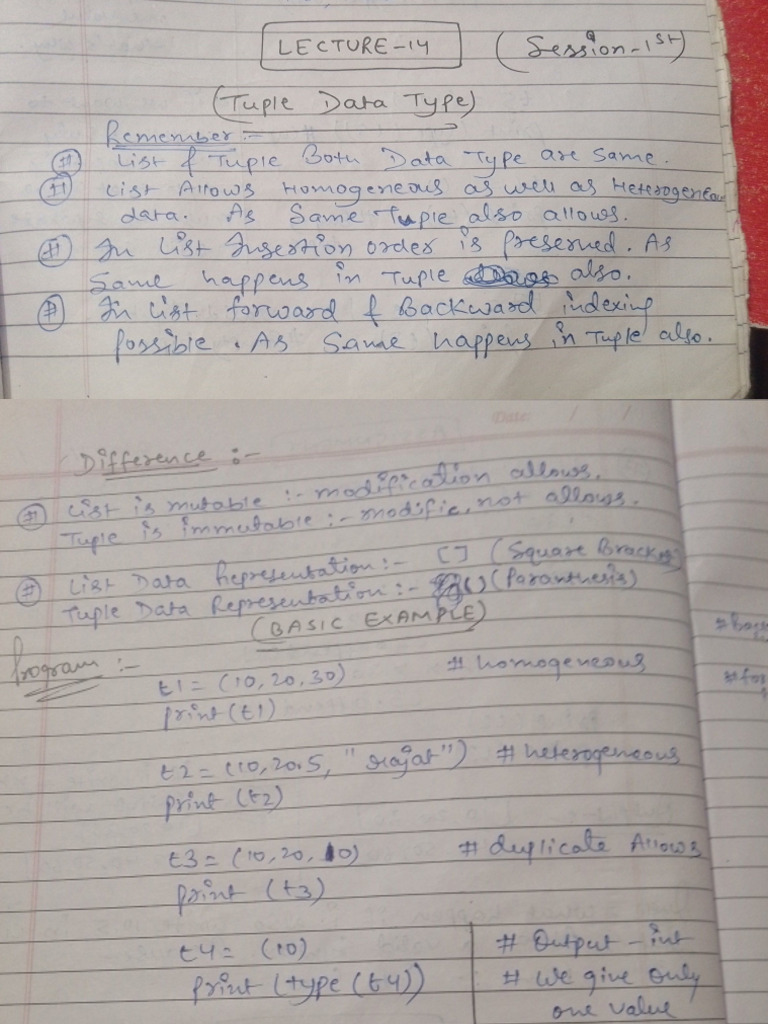 LECTURE-14 (Session-1st)
(Tuple Data Type)
Remember:-
# List & Tuple Both Data Type are Same.
# List Allows Homogeneous as well as Heterogeneous
data. As Same Tuple also allows.
# In List Insertion order is preserved. As
Same happens in Tuple also.
# In List forward & Backward indexing
possible. As Same happens in Tuple also.
Difference :-
# List is mutable :- modification allows.
Tuple is immutable :- modific. not allows.
# List Data Representation:- [] (Square Bracket)
Tuple Data Representation:- () (Paranthesis)
(BASIC EXAMPLE)
Program :-
t1 = (10, 20, 30) # homogeneous
print(t1)
t2 = (10, 20.5, "rajat") # heterogeneous
print (t2)
t3 = (10, 20, 10) # duplicate Allows
print (t3)
t4 = (10) # Output - int
print (type (t4)) # We give only
one value